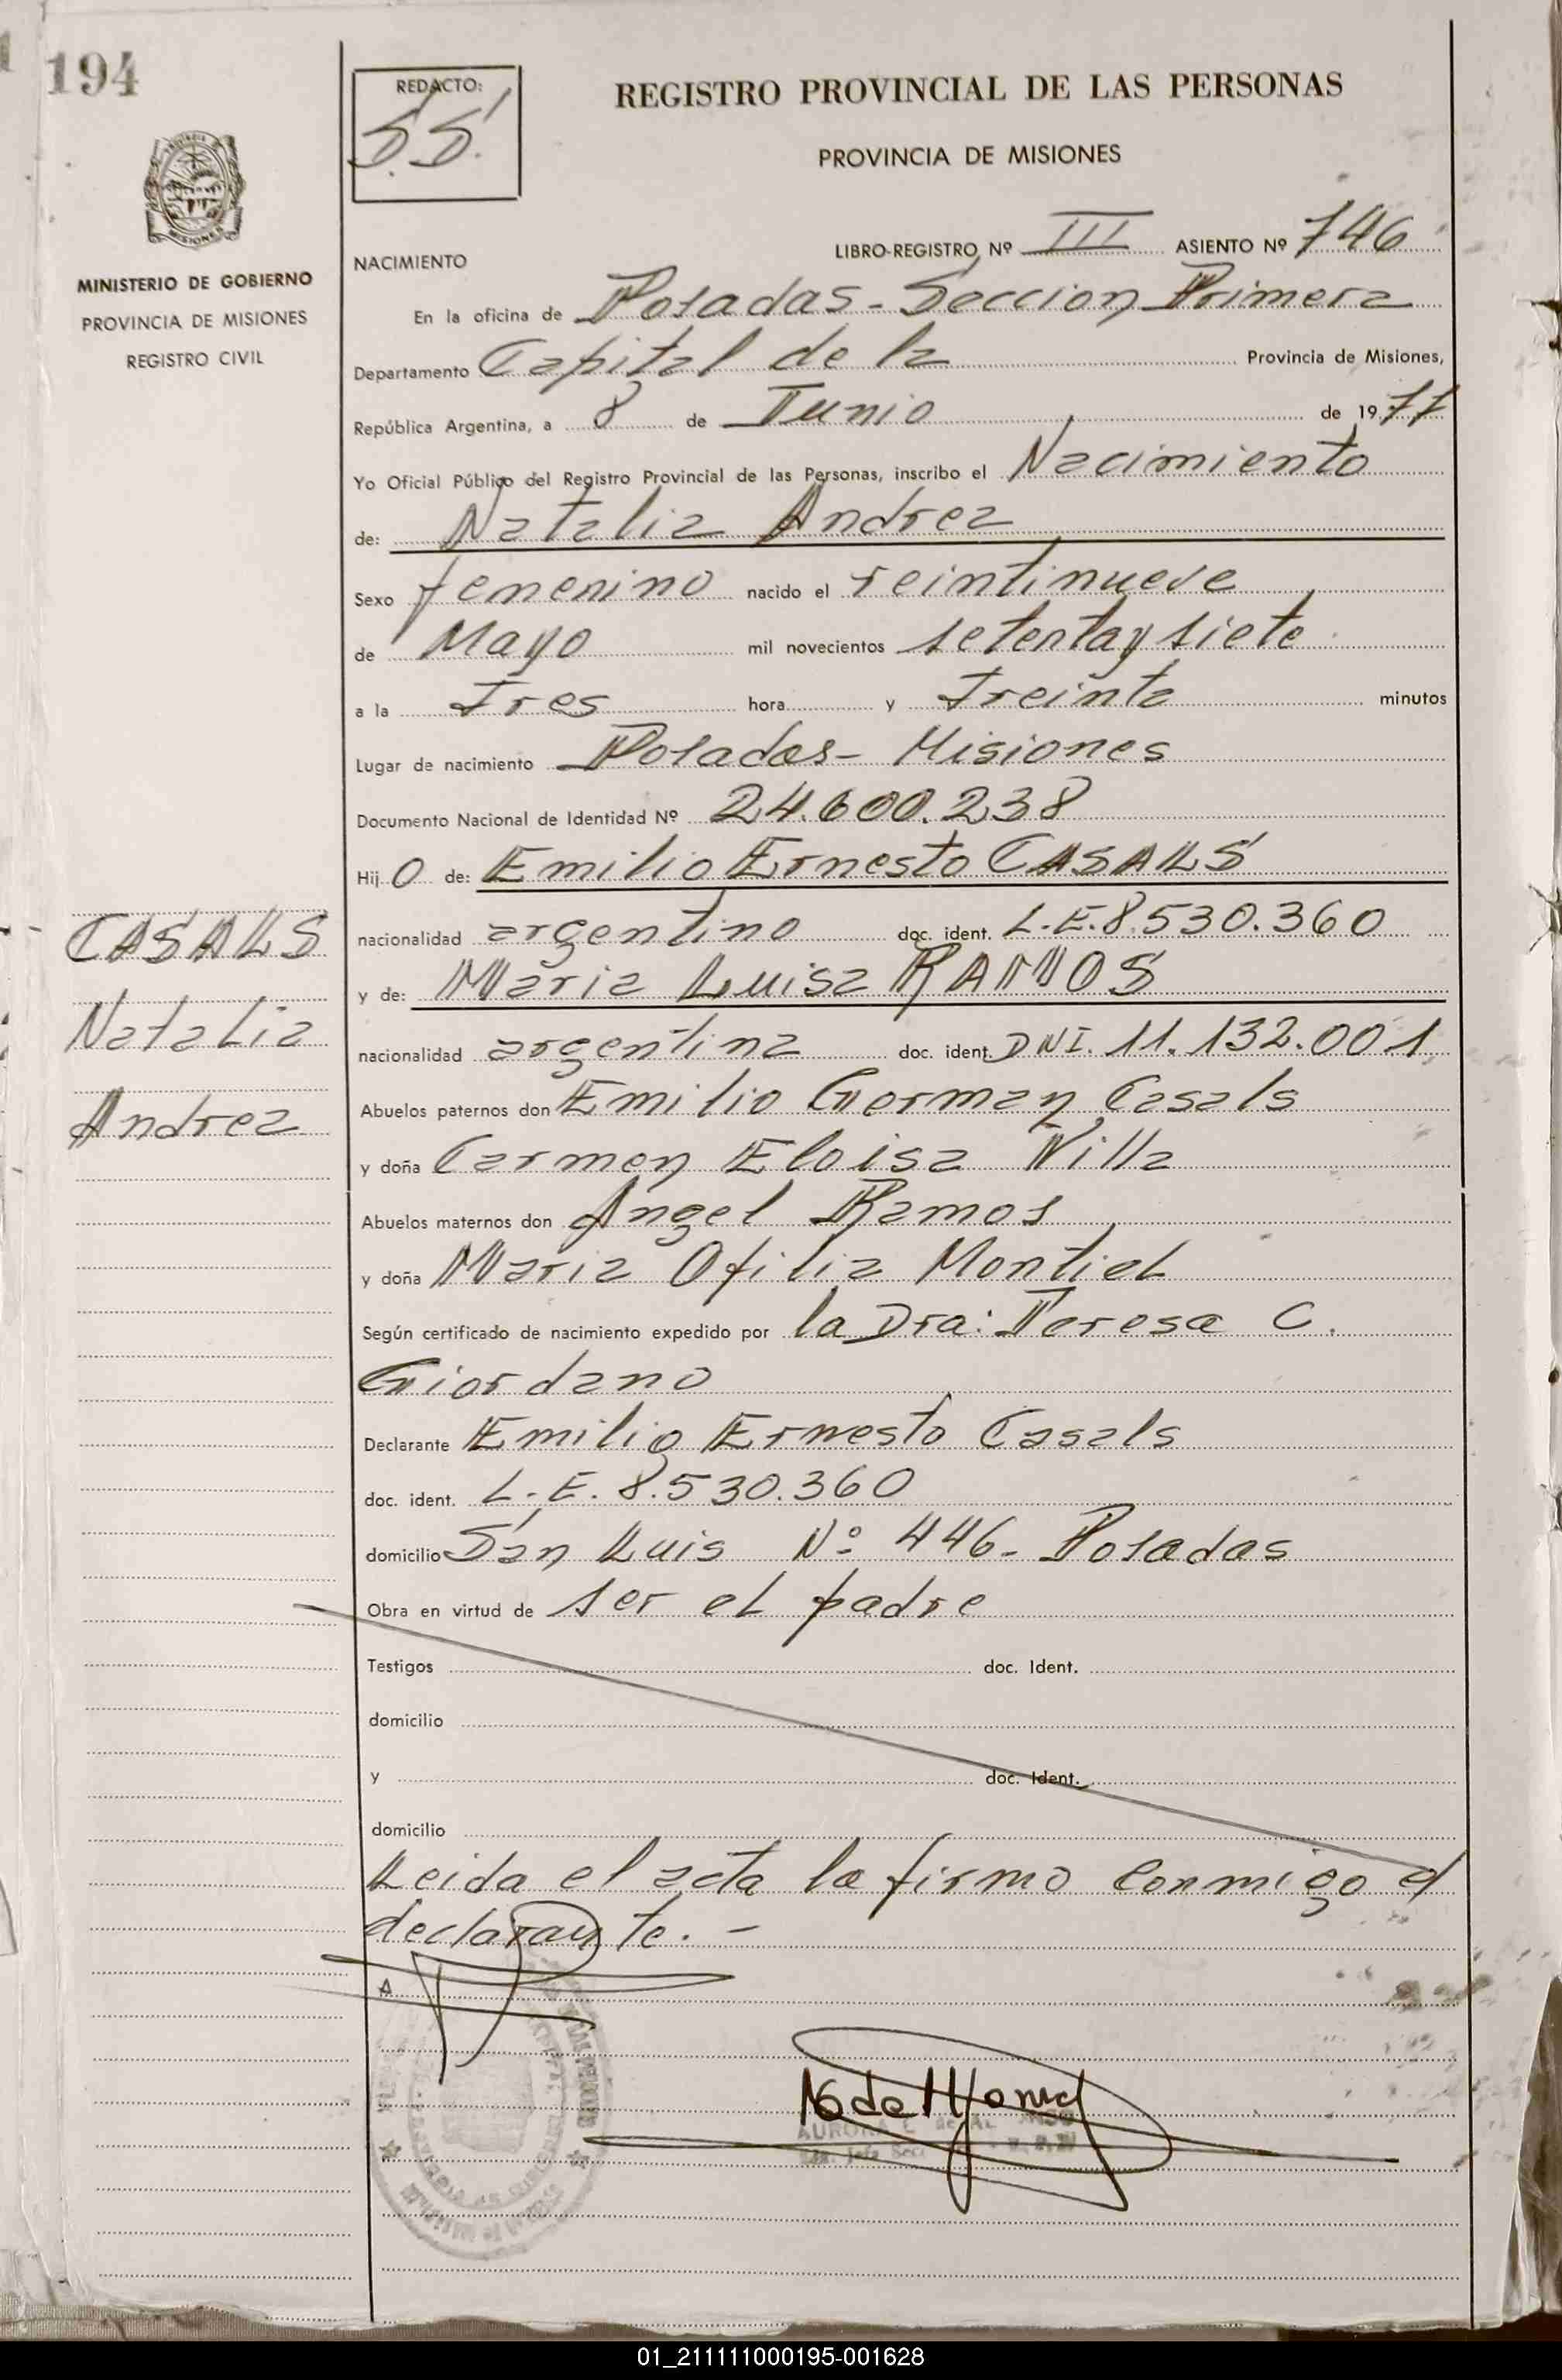 194
REDACTO:
S.S.
REGISTRO PROVINCIAL DE LAS PERSONAS
PROVINCIA DE MISIONES
MISIONES
MINISTERIO DE GOBIERNO
PROVINCIA DE MISIONES
REGISTRO CIVIL
LIBRO-REGISTRO Nº III ASIENTO Nº 746
NACIMIENTO
En la oficina de Posadas - Seccion Primera
Departamento Capital de la Provincia de Misiones,
República Argentina, a 8 de Junio de 1977
Yo Oficial Público del Registro Provincial de las Personas, inscribo el Nacimiento
de: Natalia Andrea
Sexo femenino nacido el veintinueve
de Mayo mil novecientos setenta y siete
a la Tres hora y Treinta minutos
Lugar de nacimiento Posadas - Misiones
Documento Nacional de Identidad Nº 24.600.238
Hij O de: Emilio Ernesto CASALS
nacionalidad argentino doc. ident. L.E. 8.530.360
y de: Maria Luisa RAMOS
nacionalidad argentina doc. ident. DNI. 11.132.001
Abuelos paternos don Emilio German Casals
y doña Carmen Eloisa Villa
Abuelos maternos don Angel Ramos
y doña Maria Ofilia Montiel
Según certificado de nacimiento expedido por la Dra: Teresa C.
Giordano
Declarante Emilio Ernesto Casals
doc. ident. L.E. 8.530.360
domicilio San Luis Nº 446 - Posadas
Obra en virtud de ser el padre
Testigos doc. Ident.
domicilio
y doc. Ident.
domicilio
Leida el acta la firmo conmigo el
declarante. -
CASALS
Natalia
Andrea
AURORA E
01_211111000195-001628